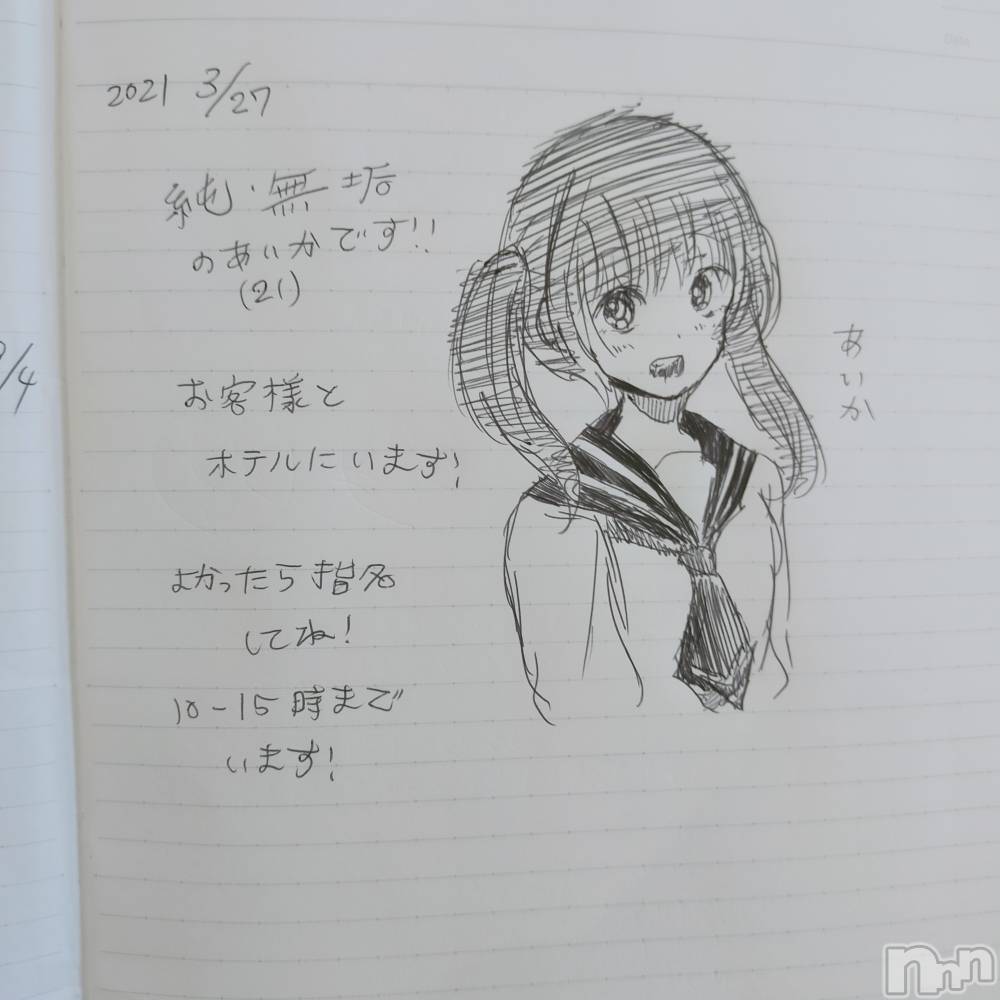 2021 3/27
純・無垢
のあいかです!!
(21)
お客様と
ホテルにいます!
よかったら指名
してね!
10-15時まで
います!
あいか
/4
nnn